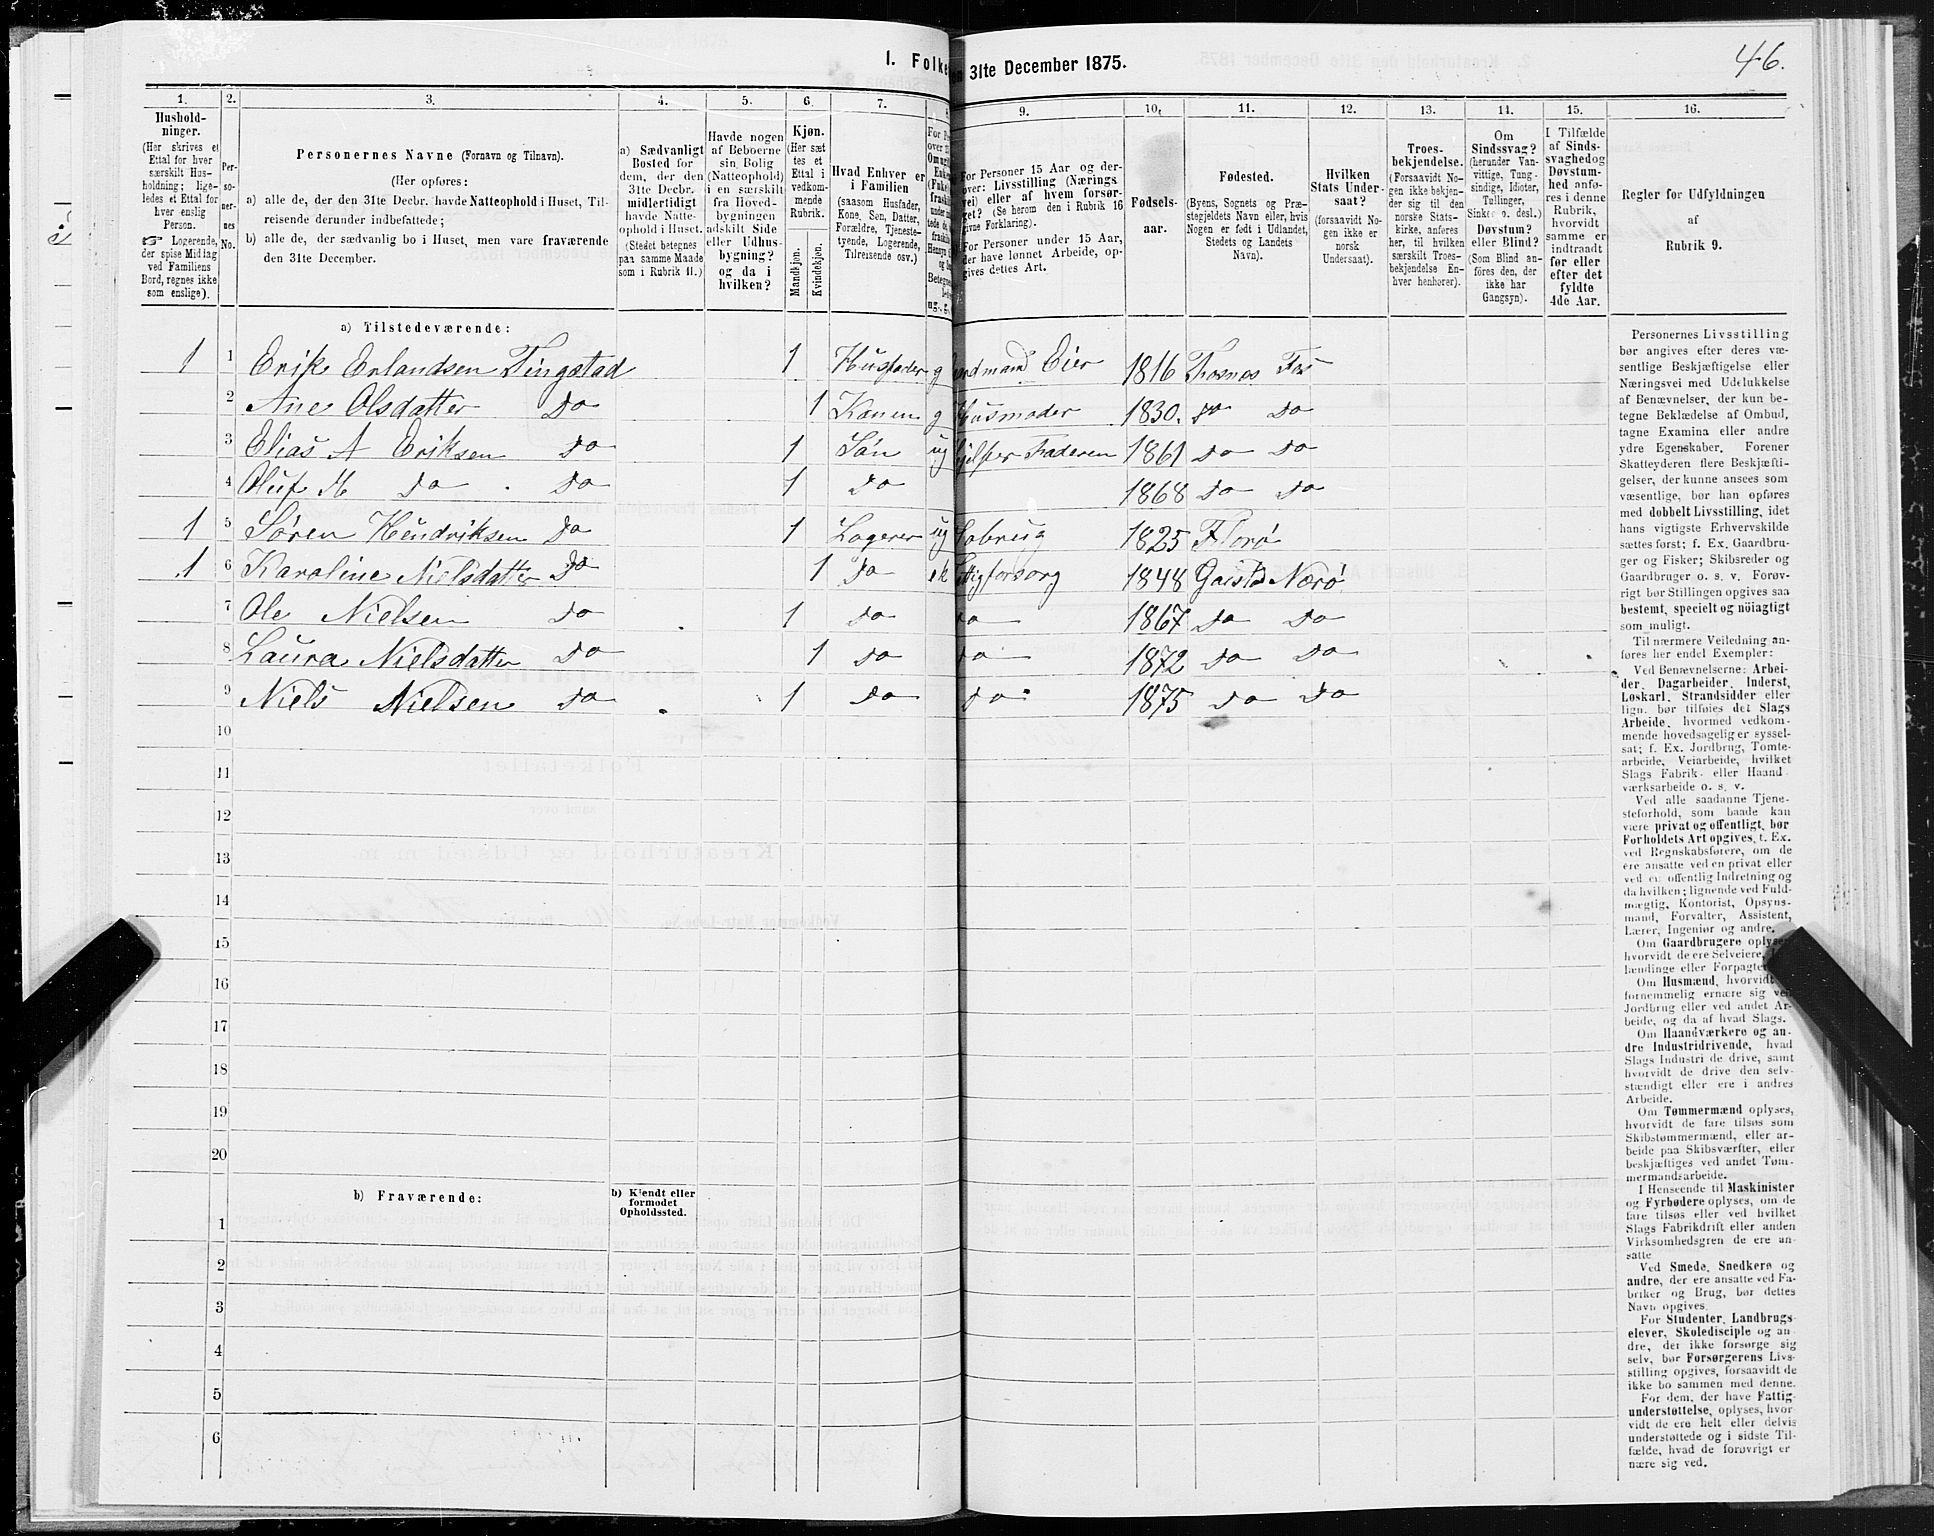 46.
I. Folke en 31te December 1875.
1. 2. 3. 4. 5. 6. 7. 8 9. 10. 11. 12. 13. 14. 15. 16.
Hushold-
ninger.
(Her skrives et
Ettal for hver
særskilt Hus-
holdning; lige-
ledes et Ettal for
hver enslig
Person.
☞ Logerende,
der spise Middag
ved Familiens
Bord, regnes ikke
som enslige).
Per-
so-
ner-
nes
No.
Personernes Navne (Fornavn og Tilnavn).
(Her opføres:
a) alle de, der den 31te Decbr. havde Natteophold i Huset, Til-
reisende derunder indbefattede;
b) alle de, der sædvanlig bo i Huset, men vare fraværende
den 31te December.
a) Sædvanligt
Bosted for
dem, der den
31te Decbr.
midlertidigt
havde Natte-
ophold i Huset.
(Stedet betegnes
paa samme Maade
som i Rubrik 11.)
Havde nogen
af Beboerne
sin Bolig
(Natteophold)
i en særskilt
fra Hoved-
bygningen
adskilt Side
eller Udhus-
bygning?
og da i
hvilken?
Kjøn.
(Her sæt-
tes et
Ettal i
vedkom-
mende
Rubrik.
Mandkjøn.
Kvindekjøn.
Hvad Enhver er
i Familien
(saasom Husfader,
Kone, Søn, Datter,
Forældre, Tjeneste-
tyende, Logerende,
Tilreisende osv.)
For Personer 15 Aar og der-
over: Livsstilling (Nærings-
vei) eller af hvem forsør-
get? (Se herom den i Rubrik 16
givne Forklaring).
For Personer under 15 Aar,
der have lønnet Arbeide, op-
gives dettes Art.
Fødsels-
aar.
Fødested.
(Byens, Sognets og Præ-
stegjeldets Navn eller, hvis
Nogen er født i Udlandet,
Stedets og Landets
Navn).
Hvilken
Stats Under-
saat?
(forsaavidt No-
gen ikke er
norsk
Undersaat).
Troes-
bekjendelse.
(Forsaavidt No-
gen ikke bekjen-
der sig til den
norske Stats-
kirke, anføres
her, til hvilken
særskilt Troes-
bekjendelse En-
hver henhører).
Om
Sindssvag?
(herunder Van-
vittige, Tung-
sindige, Idioter,
Tullinger,
Sinker o. desl.)
Døvstum?
eller Blind?
(Som Blind an-
føres den, der
ikke har
Gangsyn).
I Tilfælde
af Sinds-
svaghed og
Døvstum-
hed anfø-
res i denne
Rubrik,
hvorvidt
samme er
indtraadt
før eller
efter det
fyldte
4de Aar.
Regler for Udfyldningen
af
Rubrik 9.
a) Tilstedeværende:
1 1 Erik Erlandsen Tingstad 1 Husfader g ordmand Eier 1816 Fosnes Fos
2 Ane Olsdatter Do 1 Konen g Husmoder 1830. Do Do
3 Elias A Eriksen Do 1 Søn ug hjelper Faderen 1861 Do Do
4 Oluf M Do Do 1 Do 1868 Do Do
1 5 Søren Hendriksen Do 1 Logerer ug 1825 Florø
1 6 Karoline Nielsdatter Do 1 Do ek attigforsorg 1848 Nærø
7 Ole Nielsen Do 1 Do Do 1867 Do Do
8 Laura Nielsdatter Do 1 Do Do 1872 Do Do
9 Niels Nielsen Do 1 Do Do 1875 Do Do
10
11
12
13
14
15
16
17
18
19
20
b) Fraværende:
b) Kjendt eller
formodet
Opholdssted.
1
2
3
4
5
6
Personernes Livsstilling
bør angives efter deres væ-
sentlige Beskjæftigelse eller
Næringsvei med Udelukkelse
af Benævnelser, der kun be-
tegne Beklædelse af Ombud,
tagne Examina eller andre
ydre Egenskaber. Forener
Skatteyderen flere Beskjæfti-
gelser, der kunne ansees som
væsentlige, bør han opføres
med dobbelt Livsstilling, idet
hans vigtigste Erhvervskilde
sættes først; f. Ex. Gaardbru-
ger og Fisker; Skibsreder og
Gaardbruger o. s. v. Forøv-
rigt bør Stillingen opgives saa
bestemt, specielt og nöiagtigt
som muligt.
Til nærmere Veiledning an-
føres her endel Exempler:
Ved Benævnelserne: Arbei-
der, Dagarbeider, Inderst,
Løskarl, Strandsidder eller
lign. bør tilføies det Slags
Arbeide, hvormed vedkom-
mende hovedsagelig er syssel-
sat; f. Ex. Jordbrug, Tomte-
arbeide, Veiarbeide, hvilket
Slags Fabrik- eller Haand-
værksarbeide o. s. v.
Ved alle saadanne Tjene-
steforhold, som baade kan
være privat og offentligt, bør
Forholdets Art opgives, t. Ex.
ved Regnskabsførere, om de
ere ansatte ved en privat eller
ved en offentlig Indretning og
da hvilken; lignende ved Fuld-
mægtig, Kontorist, Opsyns-
mand, Forvalter, Assistent,
Lærer, Ingeniør og andre.
Om Gaardbrugere oplyses,
hvorvidt de ere Selveiere,
lændinge eller Forpagtere
Om Husmænd, hvorvidt
fornemmelig ernære sig ved
Jordbrug eller ved andet Ar-
beide, og da af hvad Slags.
Om Haandværkere og an-
dre Industridrivende, hvad
Slags Industri de drive, samt
hvorvidt de drive den selv-
stændigt eller ere i andres
Arbeide.
Om Tømmermænd oplyses,
hvorvidt de fare tilsøs som
Skibstømmermænd, eller ar-
beide paa Skibsværfter, eller
beskjæftiges ved andet Tøm-
mermandsarbeide.
I Henseende til Maskinister
og Fyrbødere oplyses, om de
fare tilsøs eller ved hvilket
Slags Fabrikdrift eller anden
Virksomhedsgren de ere an-
satte.
Ved Smede, Snedkere og
andre, der ere ansatte ved Fa-
briker og Brug, bør dettes
Navn opgives.
For Studenter, Landbrugs-
elever, Skoledisciple og an-
dre, der ikke forsørge sig
selv, bør Forsørgerens Livs-
stilling opgives, forsaavidt de
ikke bo sammen med denne.
For dem, der have Fattig-
understøttelse, oplyses, hvor-
vidt de ere helt eller delvis
understøttede og i sidste Til-
fælde, hvad de forøvrigt er
nære sig ved.